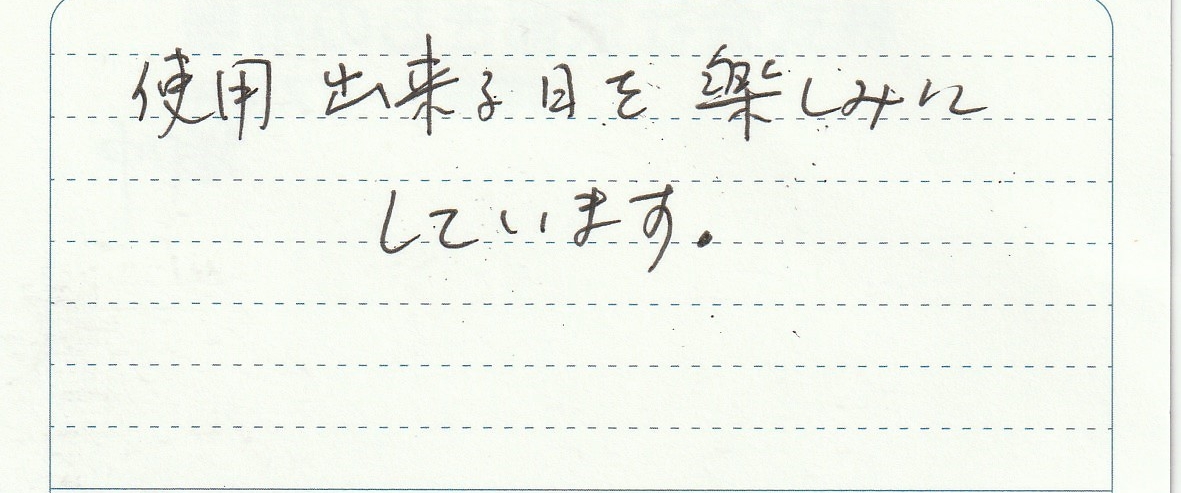 使用出来る日を楽しみに
しています.